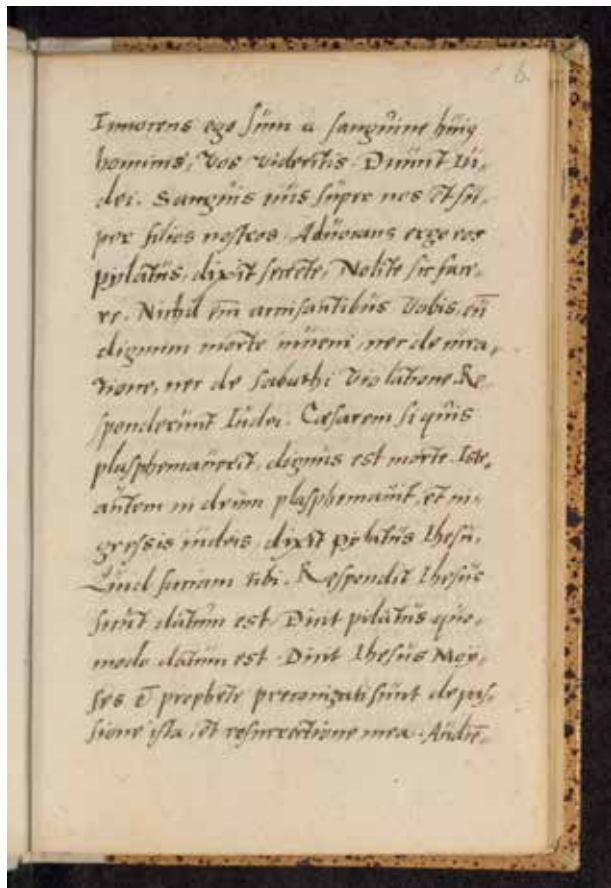 6.
Innocens ego sum a sanguine huiꝰ
hominis, Vos videritis. Dicunt Iu-
dei. Sanguis eius super nos et su-
per filios nostros. Aduocans ergo eos
pylatus, dixit secrete, Nolite sic face-
re. Nichil em̄ accusantibus Vobis, eū
dignum morte inueni, nec de cura-
tione, nec de sabathi violatione. Re-
sponderunt Iudei. Cæsarem si quis
plasphemauerit, dignus est morte. Iste
autem in deum plasphemauit, et in-
gressis iudeis, dixit pylatus Ihesu.
Quid faciam tibi. Respondit Ihesus
sicut datum est. Dixit pilatus quo-
modo datum est. Dixit Ihesus Moy-
ses et prophete preconizati sunt de pas-
sione ista, et resurrectione mea. Audiē-